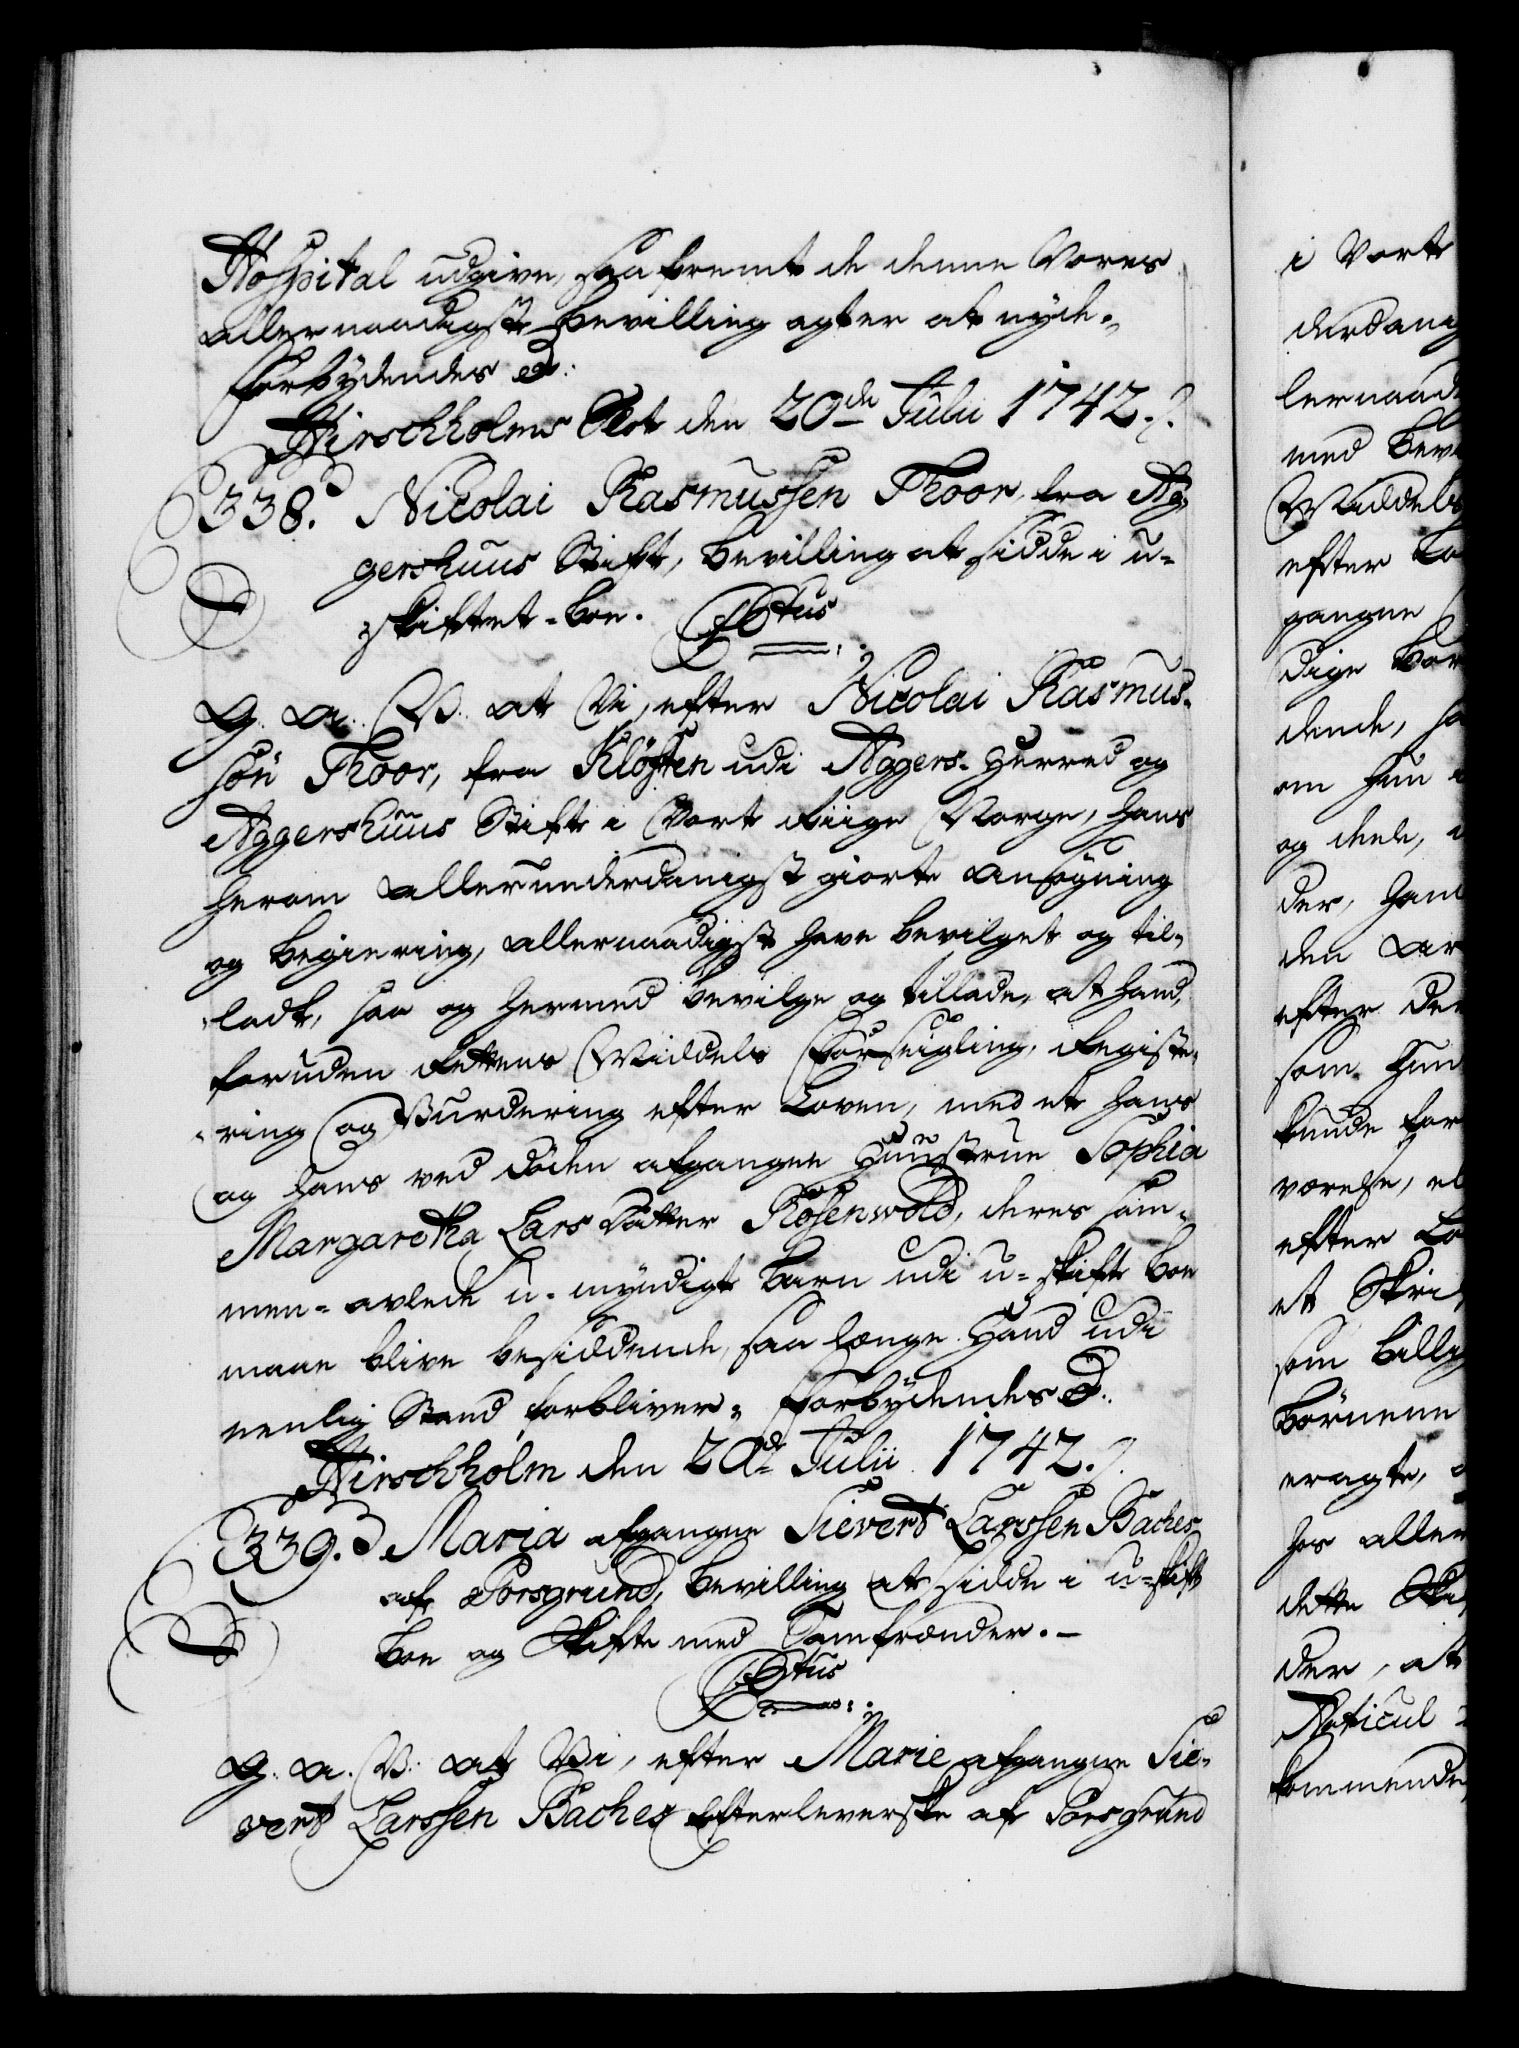 Hospital udgive, saafremt de denne Vores
allernaadigste Bevilling agter at nyde.
Forbydendes &:
Hirschholms Slot den 20de Julii 1742.
338. Nicolai Rasmussen Thoor, fra Ag-
gershuus Stift, Bevilling at sidde i u-
skiftet-Boe. Cstus
G: A: V: at Vi, efter Nicolai Rasmus-
sön Thoor, fra Klöften udi Aggers-Herred og
Aggershuus Stift i Vort Riige Norge, hans
herom allerunderdanigst giorte Ansögning
og Begiering, allernaadigst have bevilget og til-
ladt, saa og hermed bevilge og tillade, at hand,
foruden Rettens Middels Forseigling, Registe-
ring og Vurdering efter Loven, med et hans
og hans ved döden afgangne Huustrue Sophia
Margaretha Lars Datter Rosenwold, deres sam-
men-avlede u-myndigt Barn udi u-skifte Boe
maae blive besiddende, saa længe Hand udi
eenlig Stand forbliver. Forbydendes &:
Hirschholm den 20de Julii 1742.
339. Maria afgangne Sievert Larssen Baches
af Porsgrund, Bevilling at sidde i u-skift
Boe og Skifte med Samfrænder.
Cstus
G: A: V: at Vi, efter Marie afgangne Sie-
vert Larssen Baches Efterleverske af Porsgrund
i Vort
derdanig
lernaad
med bevi
Middels
efter Lo
gangne
dige Bør
dende, sa
om hun
og deele,
der, han
den Ar
efter der
som hun
kunde for
værelse, el
efter Lo
et Skri
som billig
Börnene
eragte,
hos aller
dette Ski
der, at
Articul
kommende